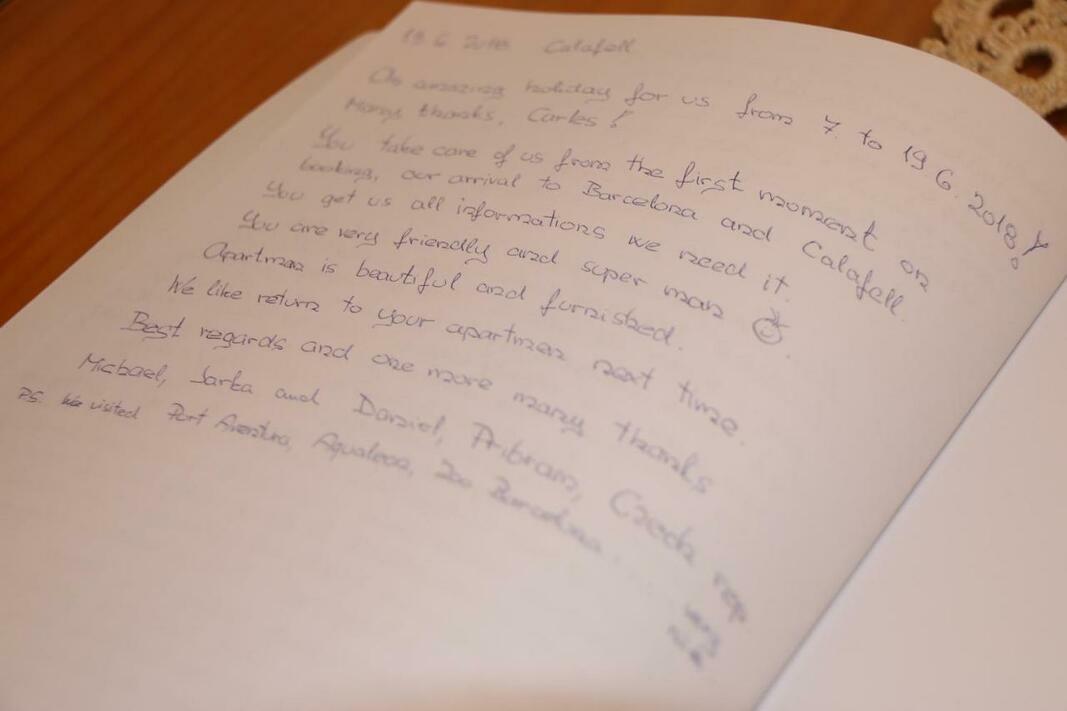 19.6. 2018 Calafell
An amazing holiday for us from 7. to 19.6.2018!
Many thanks, Carles!
You take care of us from the first moment on
booking, our arrival to Barcelona and Calafell.
You get us all informations we need it.
You are very friendly and super man ☺.
Apartman is beautiful and furnished.
We like return to your apartmen next time.
Best regards and one more many thanks
Michael, Jarka and Daniel, Pribram, Czech rep
PS. We visited Port Aventura, Aqualeon, Zoo Barcelona....
very
nice